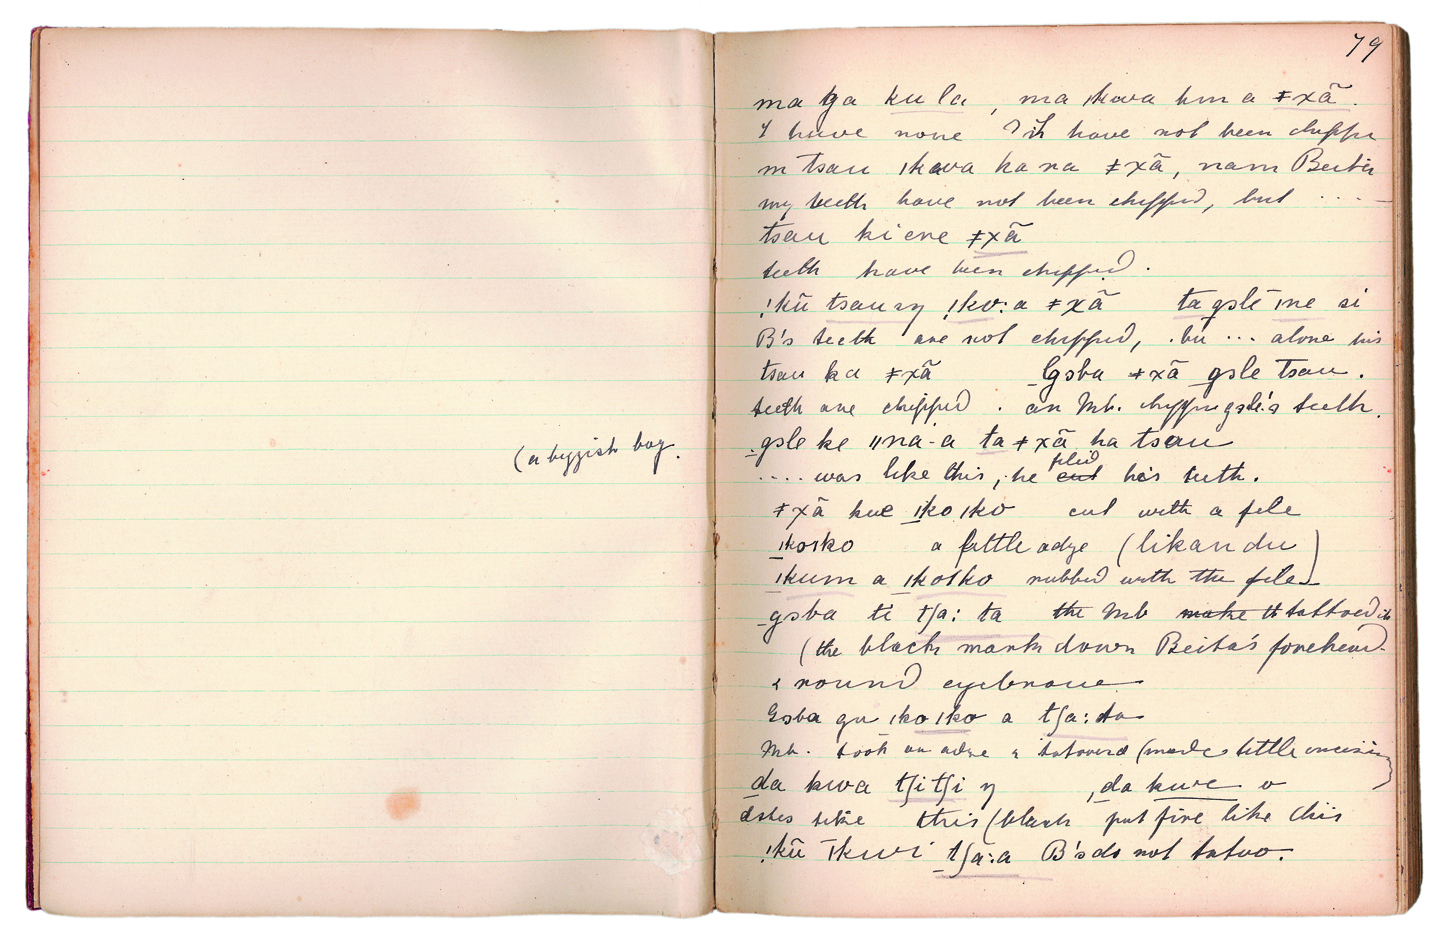 (a biggish bag.
79
ma ga ku la, ma ıkwa hm a ǂxã.
I have none I have not been chippe
m tsau ıkava ka na ǂxã, nam Beita
my teeth have not been chipped, but ....
tsau ki ene ǂxã
teeth have been chipped.
!kũ tsau ŋ !ko:a ǂxã ta gslē ıne si
B's teeth are not chipped, bu ... alone his
tsau ka ǂxã Gsba ǂxã gsle tsau.
teeth are chipped. an Mb. chipping gsle's teeth.
gsle ke ıına-a ta ǂxã ha tsau
.... was like this, he cut filed his teeth.
ǂxã kue ıkoıko cut with a file
ıkoıko a little adze (likandu)
ıkum a ıkoıko rubbed with the file
gsba ti tʃa: ta the Mb make th tattooed
(the black mark down Beita's forehead
& round eyebrow
Gsba gu ıkoıko a tʃa:ta
Mb. took an adze & tatooed (made little incisions)
da kwa tʃitʃi ŋ , da kwe
ashes like this (black put fire like this
!kũ ıkwi tʃa:a B's do not tatoo.